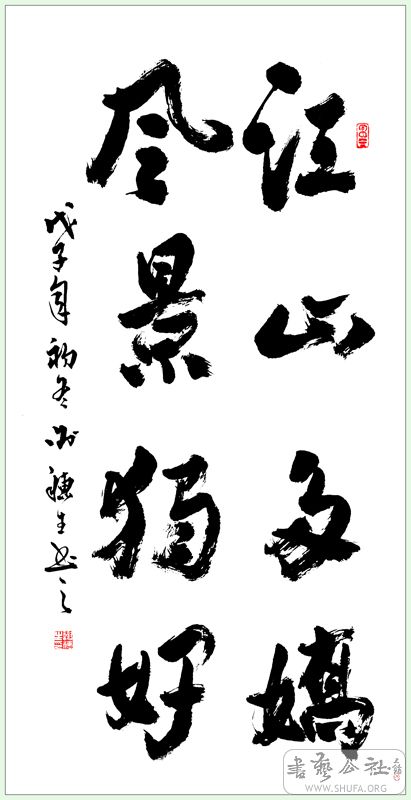 江山多嬌
風景獨好
戊子年初冬生書之
書藝公社
WWW.SHUFA.ORG